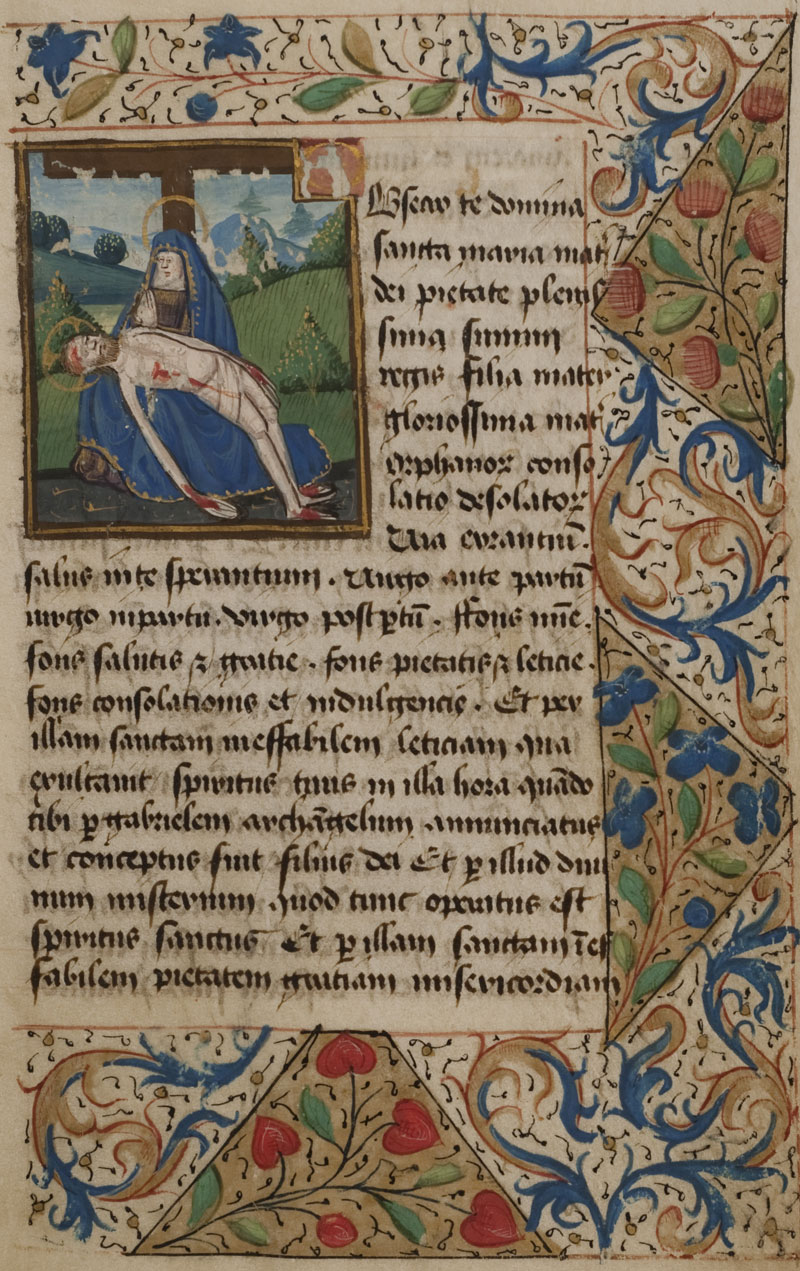 Obsecro te domina
sancta maria mat̃
dei pietate plenis
sima summi
regis filia mater
gloriosissima mat̃
orphanoꝝ conso
latio desolatoꝝ
Via errantiũ.
salus in te sperantium. Virgo ante partũ
virgo in partu. virgo post ꝑtũ. ffons mĩe.
fons salutis ⁊ gratie. fons pietatis ⁊ leticie.
fons consolationis et indulgencie. Et per
illam sanctam ineffabilem leticiam qua
exultauit spiritus tuus in illa hora quãdo
tibi ꝑ gabrielem archãgelum annunciatus
et conceptus fuit filius dei Et ꝑ illud diui
num misterium quod tunc operatus est
spiritus sanctus Et ꝑ illam sanctam ĩef
fabilem pietatem gratiam misericordiam